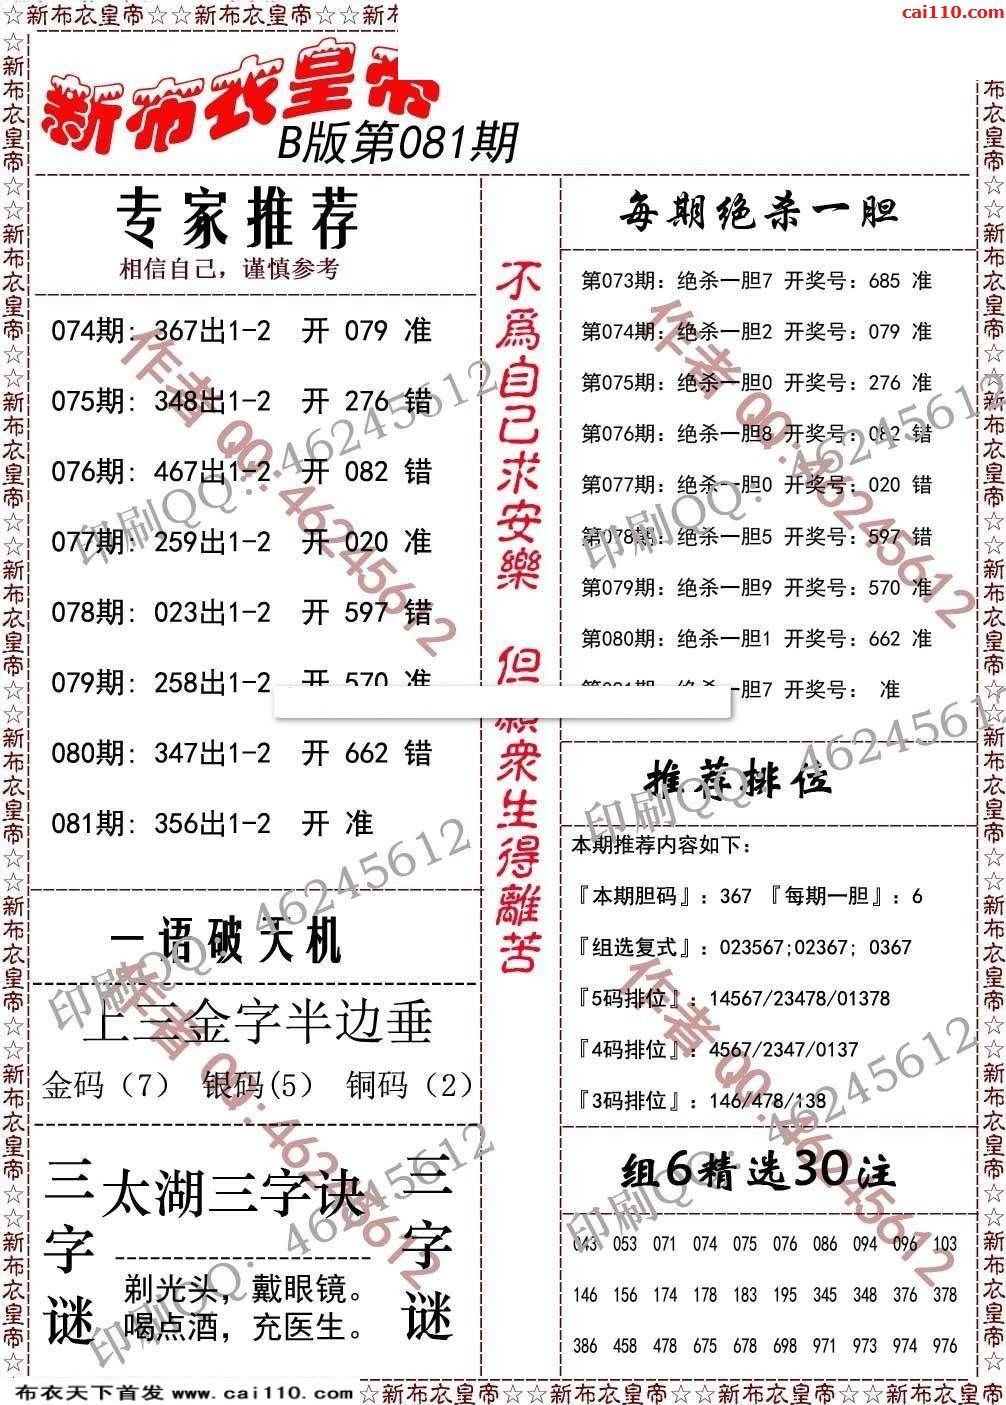 ☆新布衣皇帝☆☆新布衣皇帝☆☆新布
cai110.com
新布衣皇帝
B版第081期
专家推荐
相信自己，谨慎参考
074期: 367出1-2 开 079 准
075期: 348出1-2 开 276 错
076期: 467出1-2 开 082 错
077期: 259出1-2 开 020 准
078期: 023出1-2 开 597 错
079期: 258出1-2 开 570 准
080期: 347出1-2 开 662 错
081期: 356出1-2 开 准
一语破天机
上三金字半边垂
金码（7） 银码(5） 铜码（2）
三字谜
太湖三字诀
剃光头，戴眼镜。
喝点酒，充医生。
三字谜
不爲自己求安樂 但願衆生得離苦
每期绝杀一胆
第073期: 绝杀一胆7 开奖号: 685 准
第074期: 绝杀一胆2 开奖号: 079 准
第075期: 绝杀一胆0 开奖号: 276 准
第076期: 绝杀一胆8 开奖号: 082 错
第077期: 绝杀一胆0 开奖号: 020 错
第078期: 绝杀一胆5 开奖号: 597 错
第079期: 绝杀一胆9 开奖号: 570 准
第080期: 绝杀一胆1 开奖号: 662 准
一胆7 开奖号: 准
推荐排位
本期推荐内容如下:
『本期胆码』: 367 『每期一胆』: 6
『组选复式』: 023567;02367; 0367
『5码排位』: 14567/23478/01378
『4码排位』: 4567/2347/0137
『3码排位』: 146/478/138
组6精选30注
043 053 071 074 075 076 086 094 096 103
146 156 174 178 183 195 345 348 376 378
386 458 478 675 678 698 971 973 974 976
作者 QQ:46245612
印刷QQ: 46245612
作者 QQ:46245612
印刷QQ: 46245612
印刷QQ: 46245612
印刷QQ: 46245612
作者 QQ:46245612
作者 QQ:46245612
印刷QQ: 46245612
印刷QQ: 46245612
布衣天下首发 www.cai110.com
☆新布衣皇帝☆☆新布衣皇帝☆☆新布衣皇帝☆☆新布衣皇帝☆